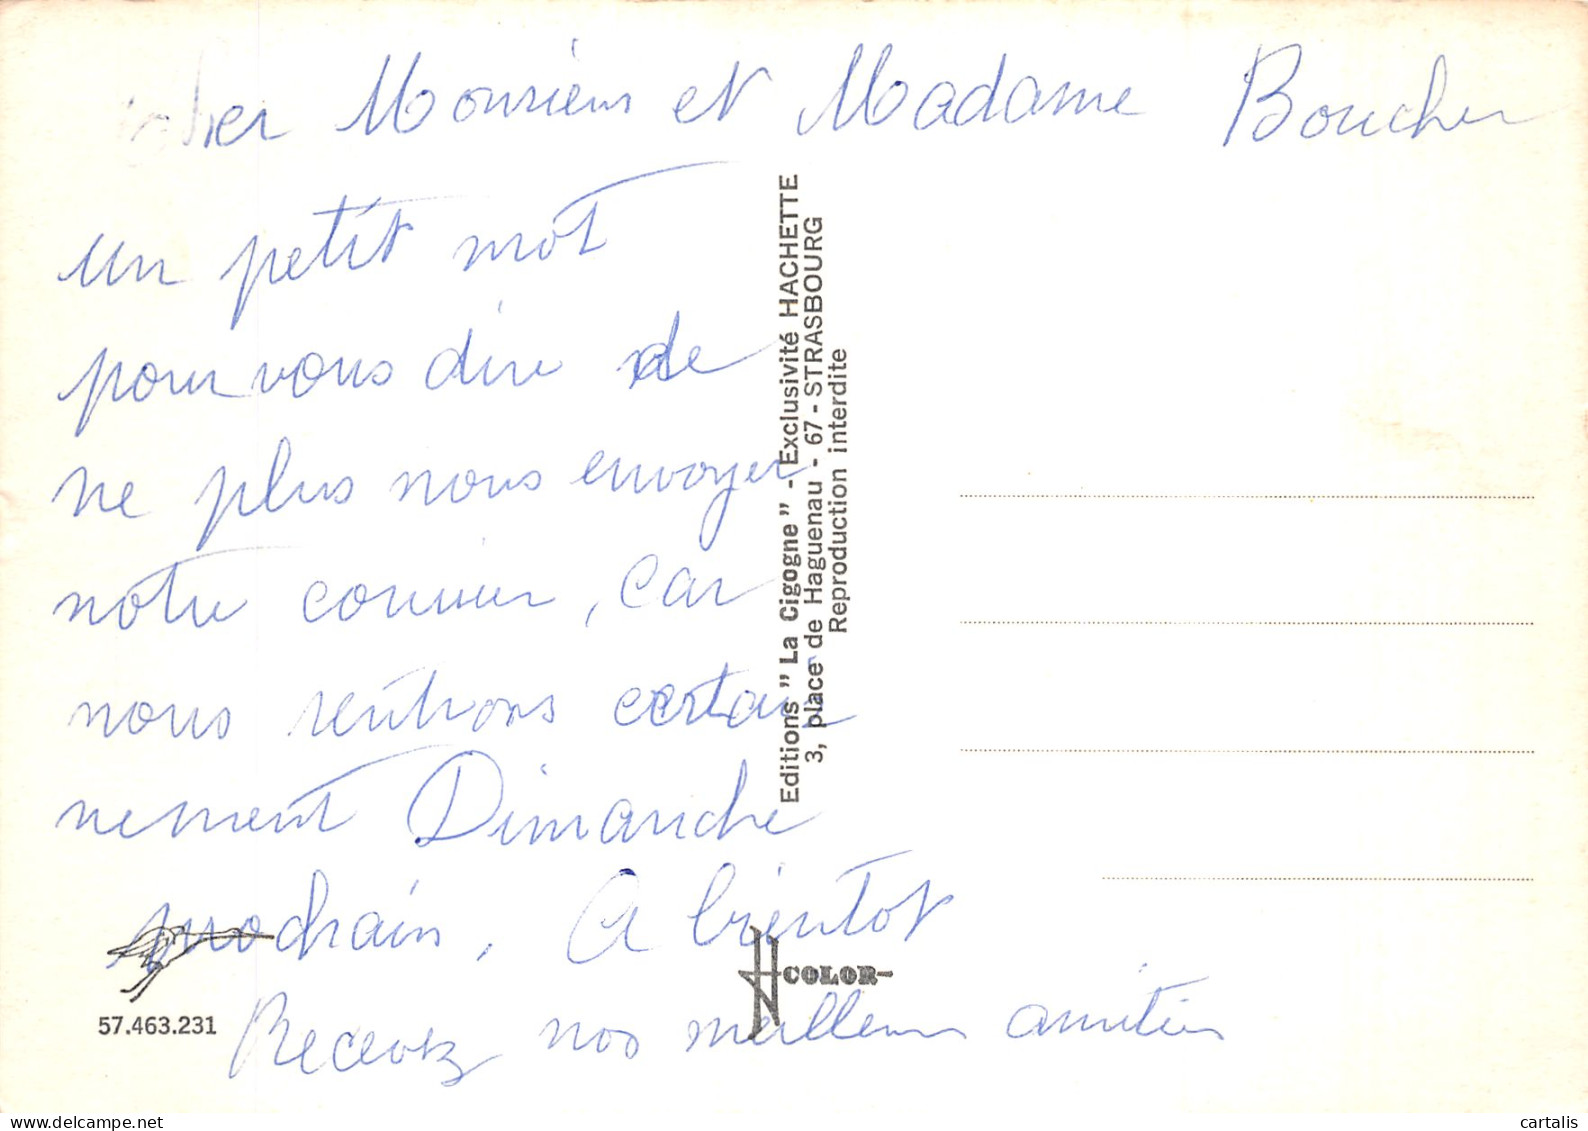 Cher Monsieur et Madame Boucher
un petit mot
pour vous dire de
ne plus nous envoyer
notre courrier, car
nous rentrons certai
nement Dimanche
prochain, A bientot
Recevez nos meilleurs amitiés
Editions "La Cigogne" - Exclusivité HACHETTE
3, place de Haguenau - 67 - STRASBOURG
Reproduction interdite
COLOR
57.463.231
delcampe.net
cartalis